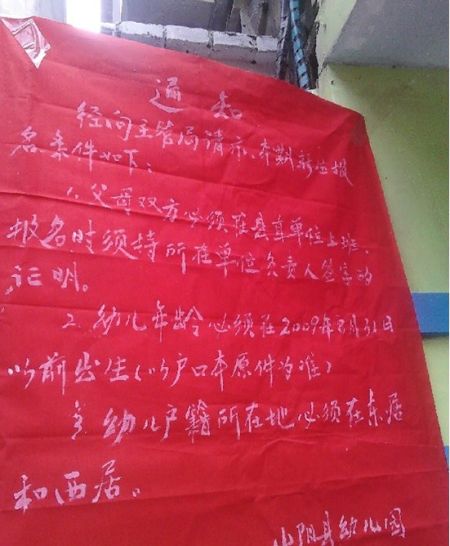 通知
径向主管局请示,本期新生报
名条件如下:
1.父母双方必须在县直单位上班、
报名时须持所在单位负责人签字的
证明。
2.幼儿年龄必须在2009年8月31日
以前出生(以户口本原件为准)
3.幼儿户籍所在地必须在东居
和西居。
山阳县幼儿园